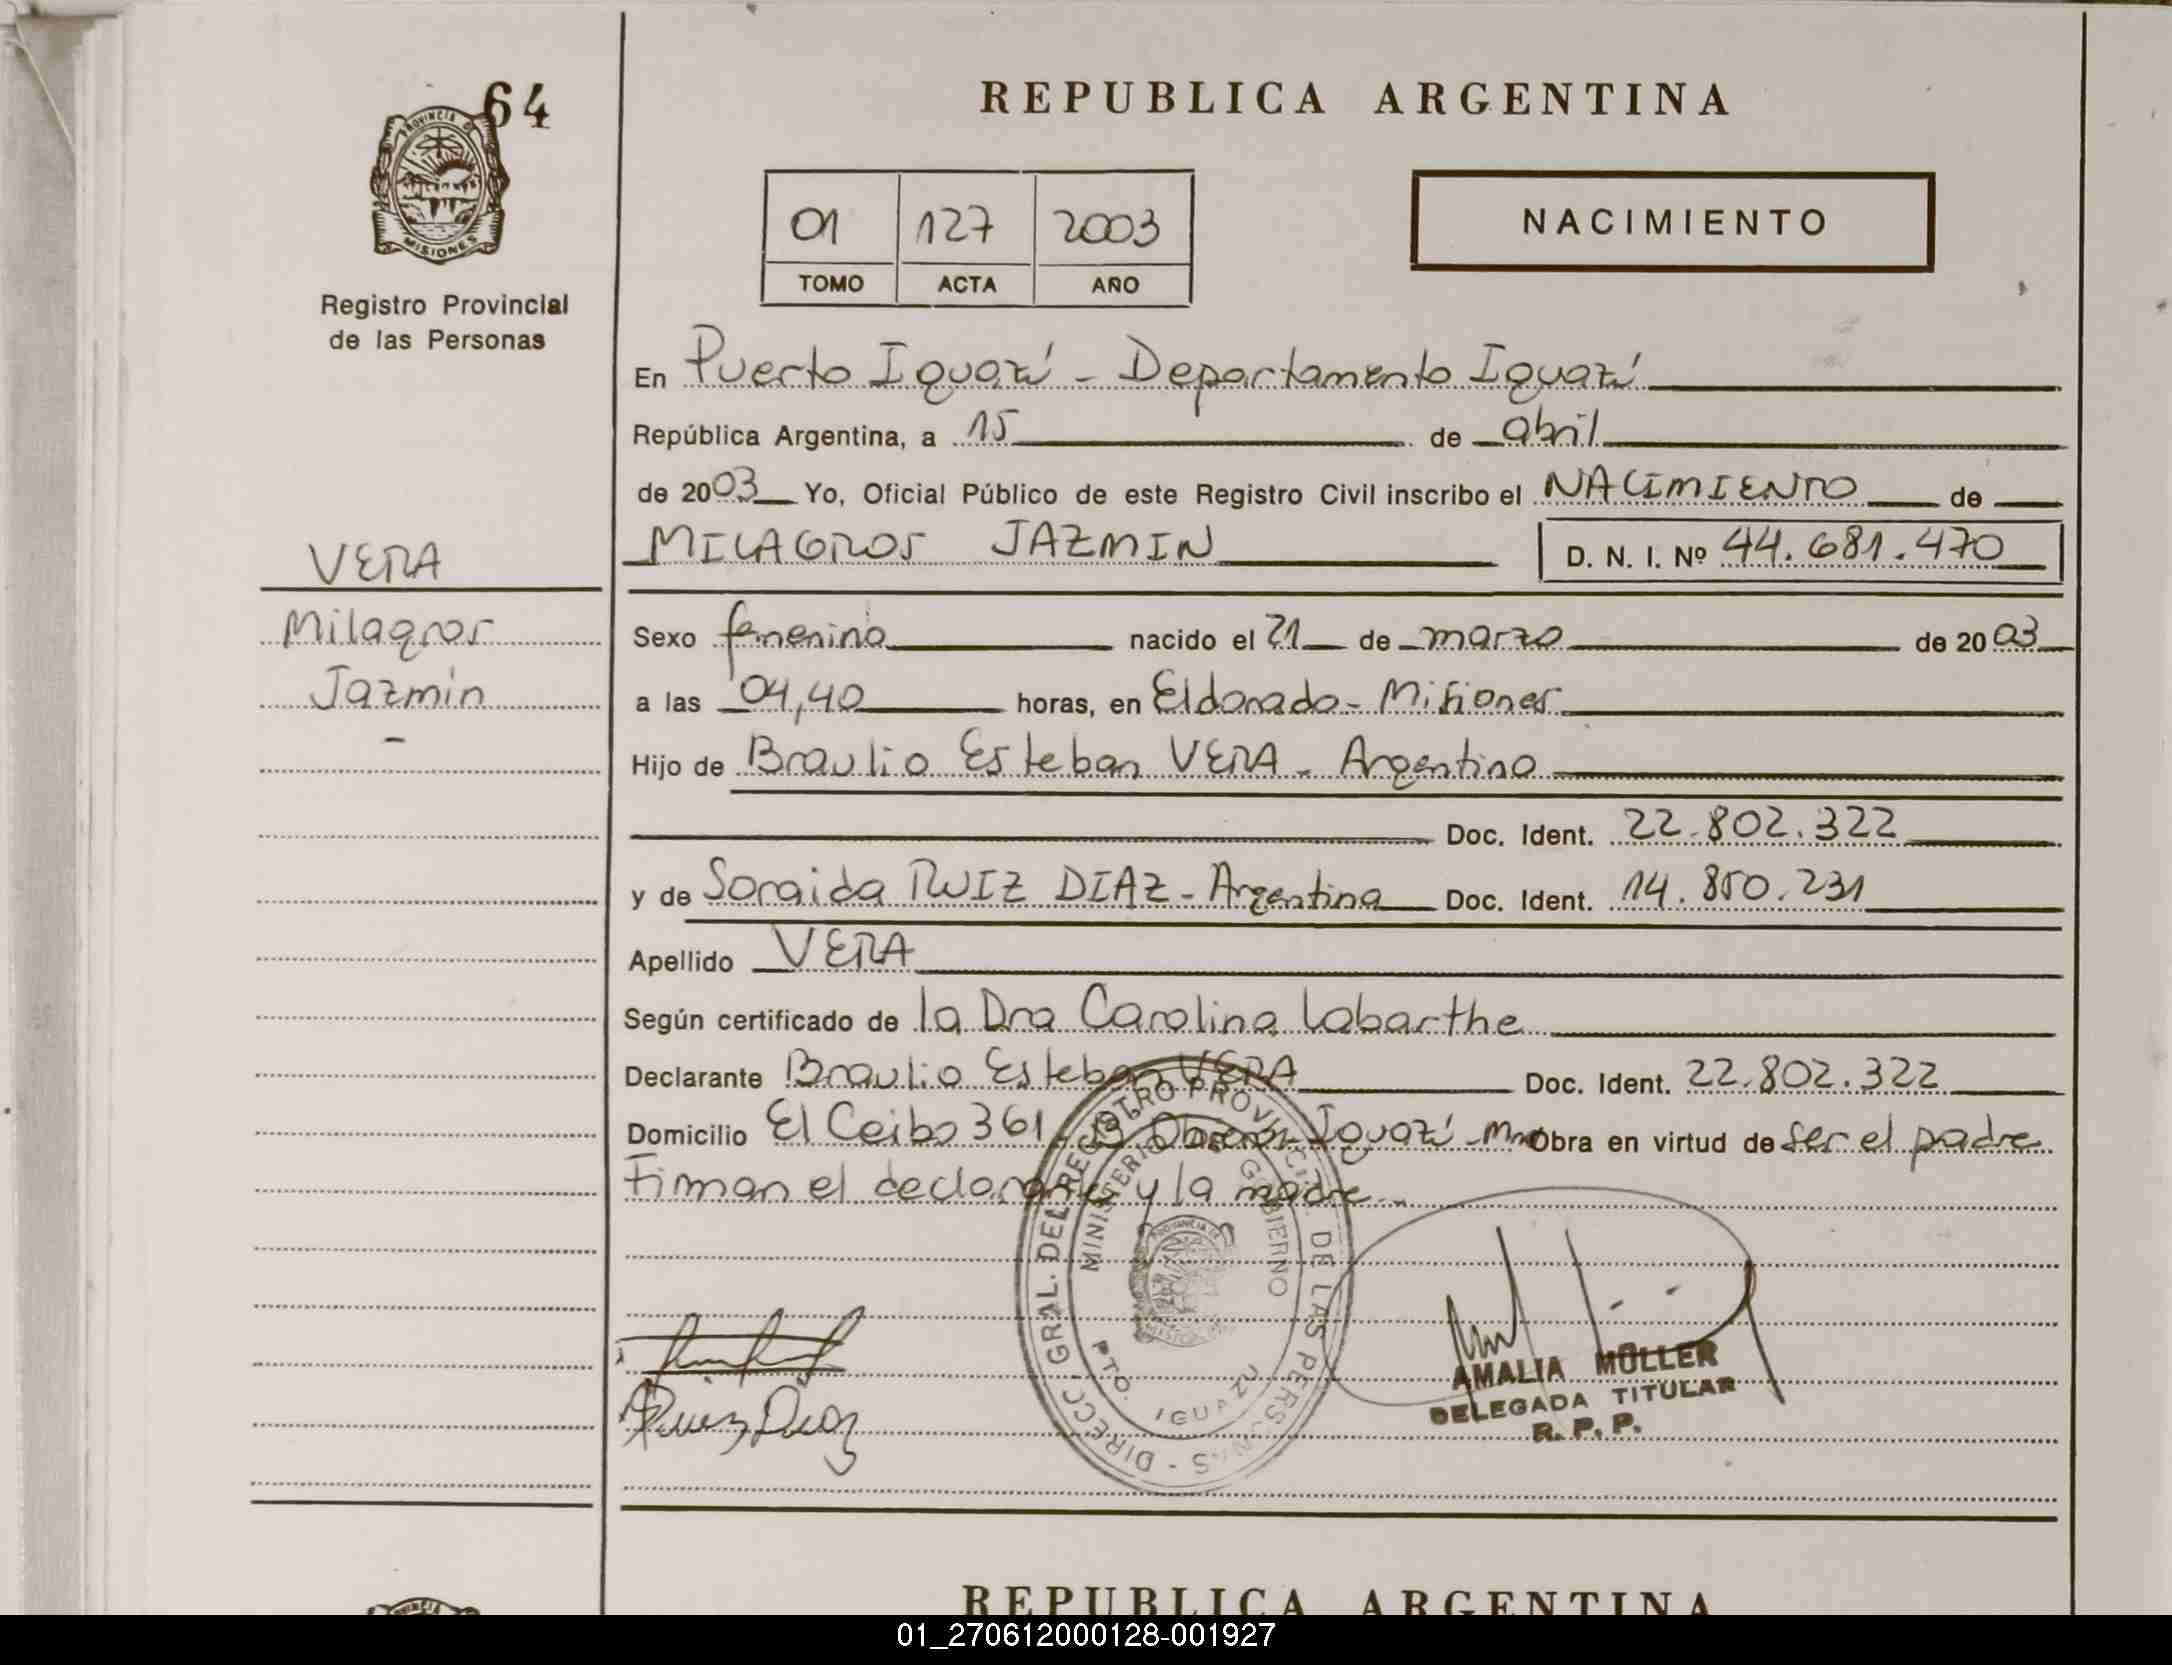 64
PROVINCIA D
MISIONES
Registro Provincial
de las Personas
REPUBLICA ARGENTINA
01 127 2003
TOMO ACTA AÑO
NACIMIENTO
En Puerto Iguazú - Departamento Iguazú
República Argentina, a 15 de abril
de 2003 Yo, Oficial Público de este Registro Civil inscribo el NACIMIENTO de
MILAGROS JAZMIN D. N. I. Nº 44.681.470
VERA
Milagros
Jazmin
-
Sexo femenino nacido el 21 de marzo de 2003
a las 04,40 horas, en Eldorado - Misiones
Hijo de Braulio Esteban VERA - Argentino
Doc. Ident. 22.802.322
y de Soraida RUIZ DIAZ - Argentina Doc. Ident. 14.850.231
Apellido VERA
Según certificado de la Dra Carolina Labarthe
Declarante Braulio Esteban VERA Doc. Ident. 22.802.322
Domicilio El Ceibo 361 - Bº Obrero - Iguazú - Mnes Obra en virtud de ser el padre
Firman el declarante y la madre -
DIRECC. GRAL. DEL REGISTRO PROVINCIAL DE LAS PERSONAS -
MINISTERIO DE GOBIERNO
PTO. IGUAZU
Ruiz Diaz
AMALIA MÜLLER
DELEGADA TITULAR
R. P. P.
REPUBLICA ARGENTINA
01_270612000128-001927